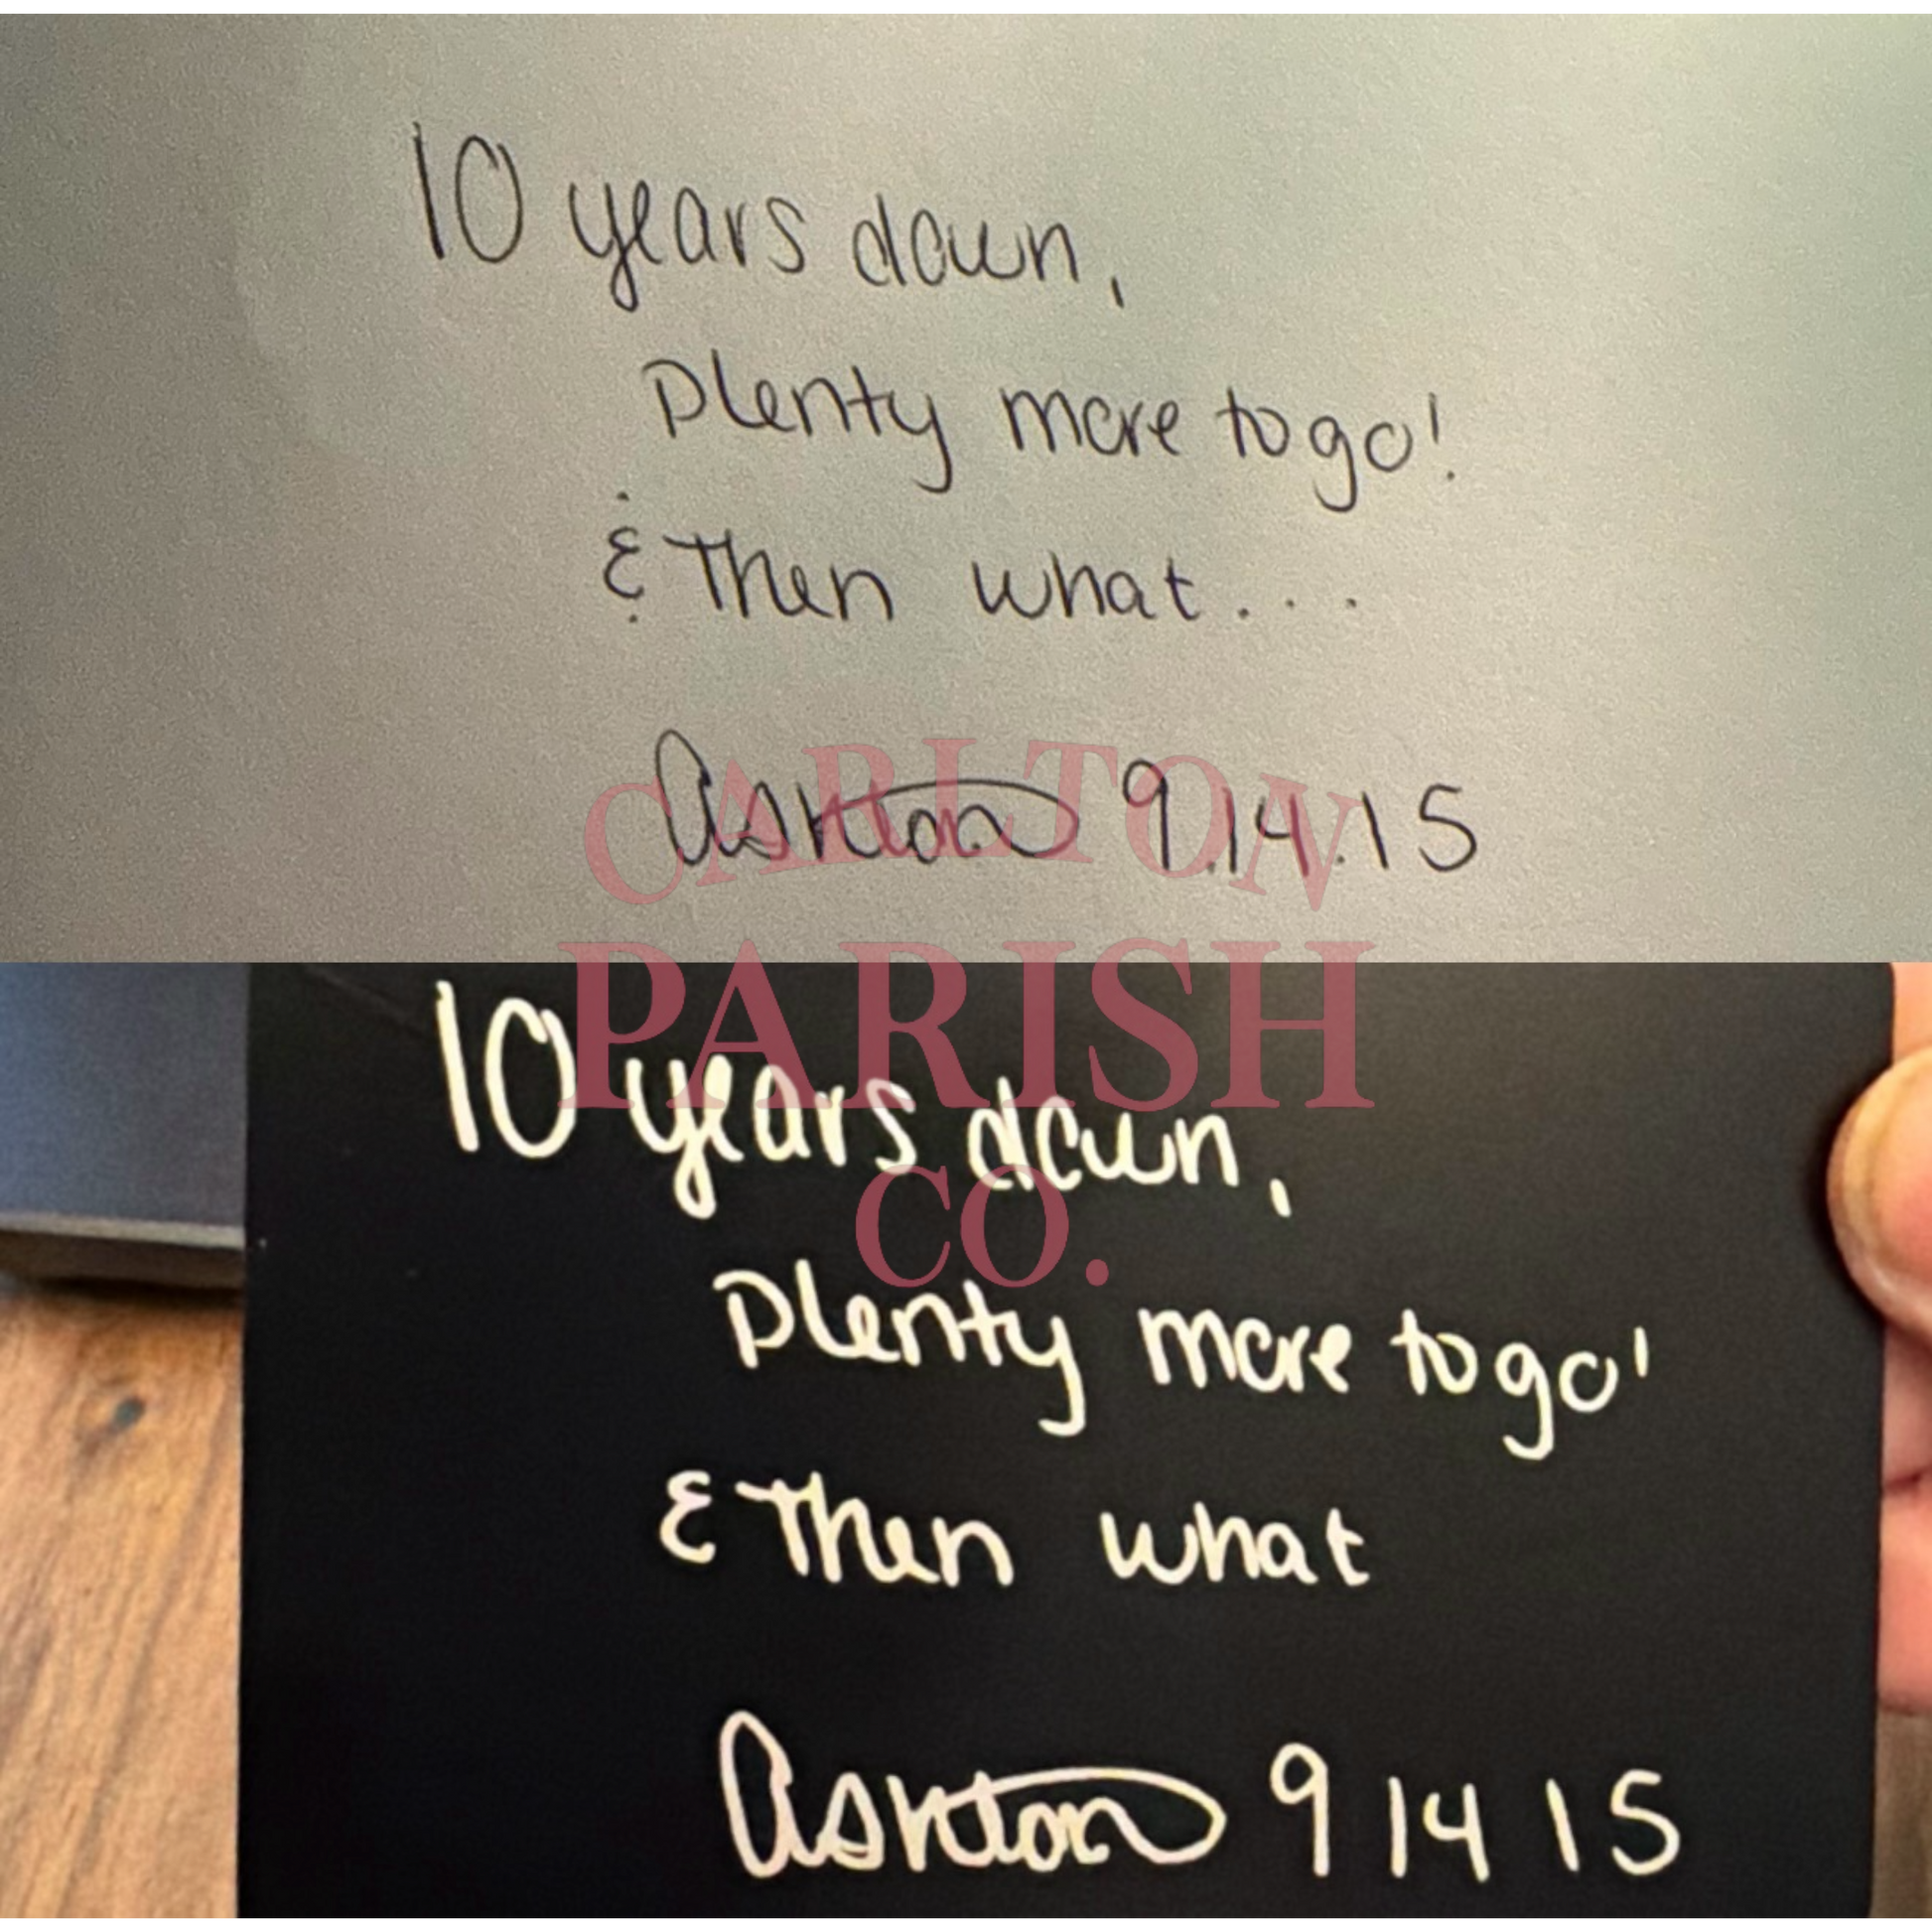 10 years down,
Plenty more to go!
& Then what...
Ashton 9.14.15
CARLTON
PARISH
CO.
10 years down,
Plenty more to go'
& Then what
Ashton 9 14 15